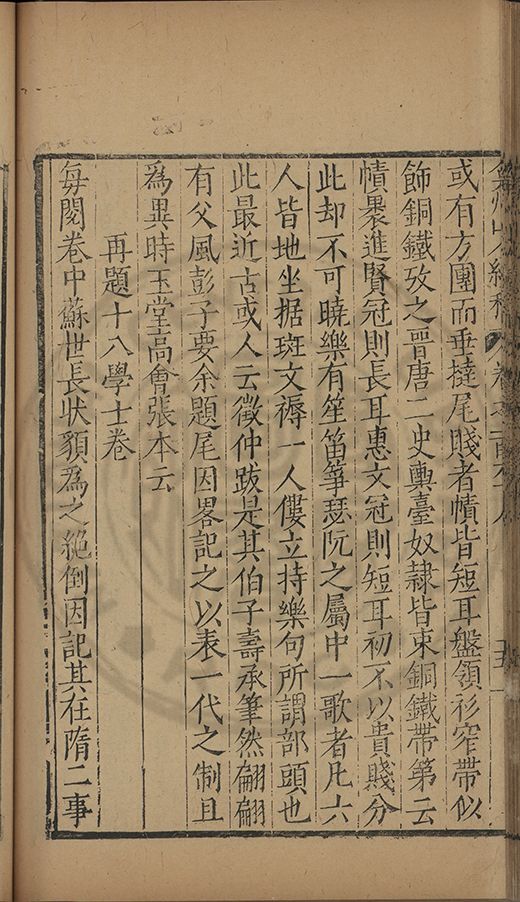 或有方團而垂撻尾賤者幘皆短耳盤領衫窄帶似
飾銅鐵攷之晋唐二史輿臺奴隸皆束銅鐵帶第云
幘褁進賢冠則長耳惠文冠則短耳初不以貴賤分
此却不可曉樂有笙笛箏瑟阮之屬中一歌者凡六
人皆地坐据斑文褥一人僂立持樂句所謂部頭也
此最近古或人云徵仲跋是其伯子壽承筆然翩翩
有父風彭子要余題尾因畧記之以表一代之制且
為異時玉堂高會張本云
再題十八學士卷
每閱卷中蘇世長狀貌為之絕倒因記其在隋二事